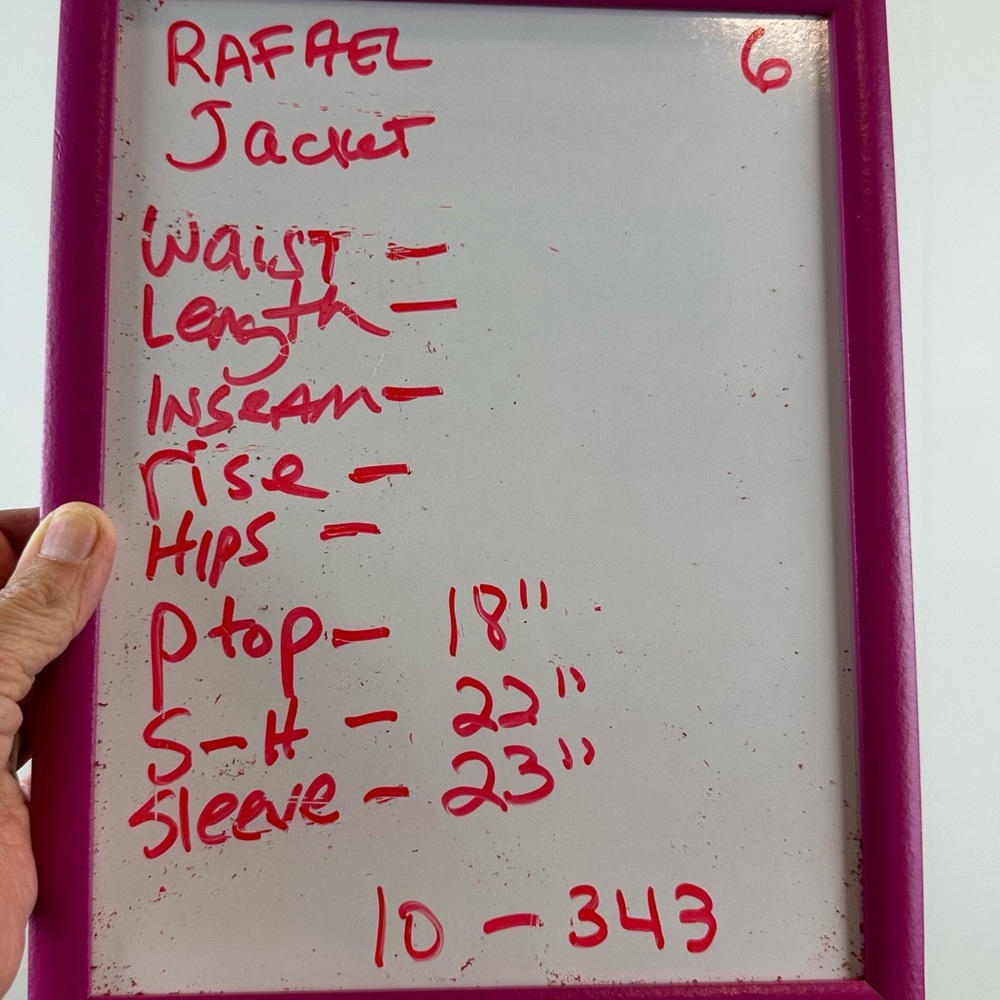 RAFAEL 6
Jacket
Waist -
Length -
INSeAM -
rise -
HIPS -
P top - 18"
S-H - 22"
Sleeve - 23"
10 - 343